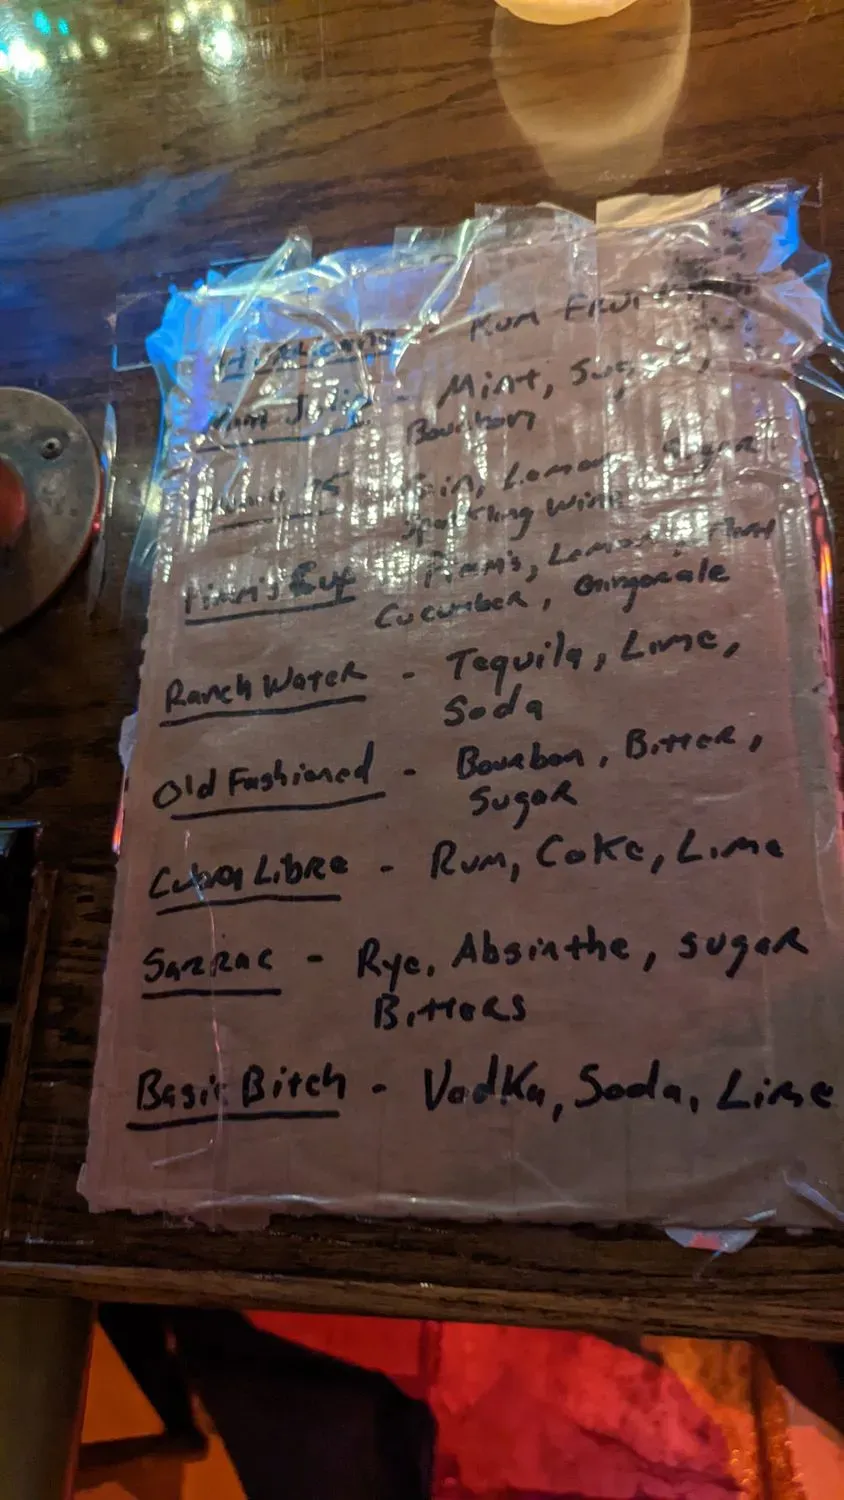 Hurricane - Rum Fruit
Mint Julip - Mint, Sugar,
Bourbon
75 - Gin, Lemon Sugar
Sparkling Wine
Pimm's Cup - Pimm's, Lemon, Mint
Cucumber, Gingerale
Ranch Water - Tequila, Lime,
Soda
Old Fashioned - Bourbon, Bitter,
Sugar
Cuba Libre - Rum, Coke, Lime
Sazzrac - Rye, Absinthe, sugar
Bitters
Basic Bitch - Vodka, Soda, Lime